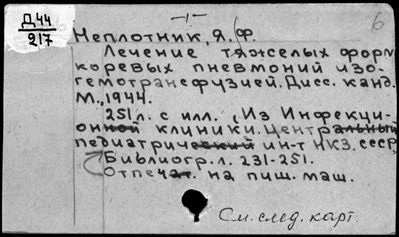 Д44
217
-1-
6
Неплотник, Я. Ф.
Лечение тяжелых форм
коревых пневмоний изо-
гемотрансфузией. Дисс. канд.
М., 1944.
251 л. с илл. , Из Инфекци-
онной клиники. Центральный
педиатрический ин-т НКЗ. СССР
Библиогр. л. 231-251.
Отпечат. на пиш. маш.
См. след. карт.